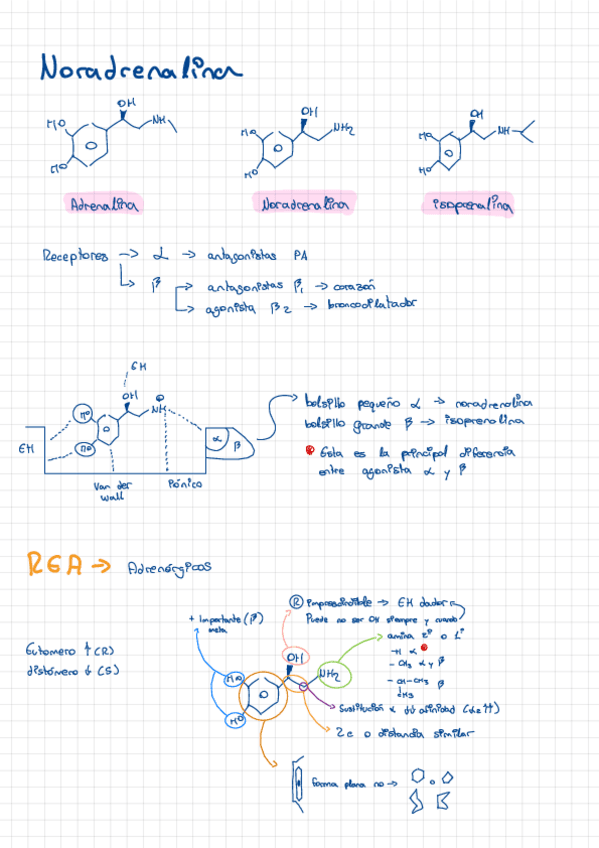 Noradrenalina
OH
HO
NH
HO
OH
HO
NH2
HO
OH
HO
NH
HO
Adrenalina
Noradrenalina
isoprenalina
Receptores → α → antagonistas PA
β → antagonistas β1 → corazón
→ agonista β2 → broncodilatador
EH
OH
HO
NH
HO
EH
α
β
Van der
Wall
Iónico
bolsillo pequeño α → noradrenalina
bolsillo grande β → isoprenalina
Esta es la principal diferencia
entre agonista α y β
REA → Adrenérgicos
Eutomero ↑ (R)
distómero ↓ (S)
+ importante (β)
meta
R imprescindible → EH dador
Puede no ser OH siempre y cuando
amina 2ª o 1ª
-H α
- CH3 α y β
- CH-CH3 β
CH3
OH
HO
NH2
HO
Sustitución α ↓↓ afinidad (α2↑↑)
2c o distancia similar
forma plana no →